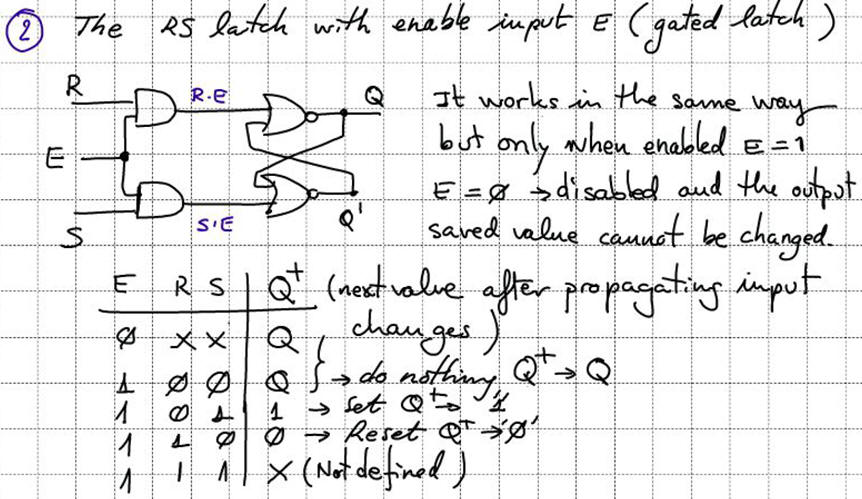 ② The RS latch with enable input E (gated latch)
R
R·E
Q
It works in the same way
but only when enabled E = 1
E
E = Ø → disabled and the output
S·E
Q'
saved value cannot be changed.
S
E R S | Q⁺ (next value after propagating input
changes)
Ø X X | Q
1 Ø Ø | Q } → do nothing, Q⁺ → Q
1 Ø 1 | 1 → Set Q⁺ → '1'
1 1 Ø | Ø → Reset Q⁺ → 'Ø'
1 1 1 | X (Not defined)